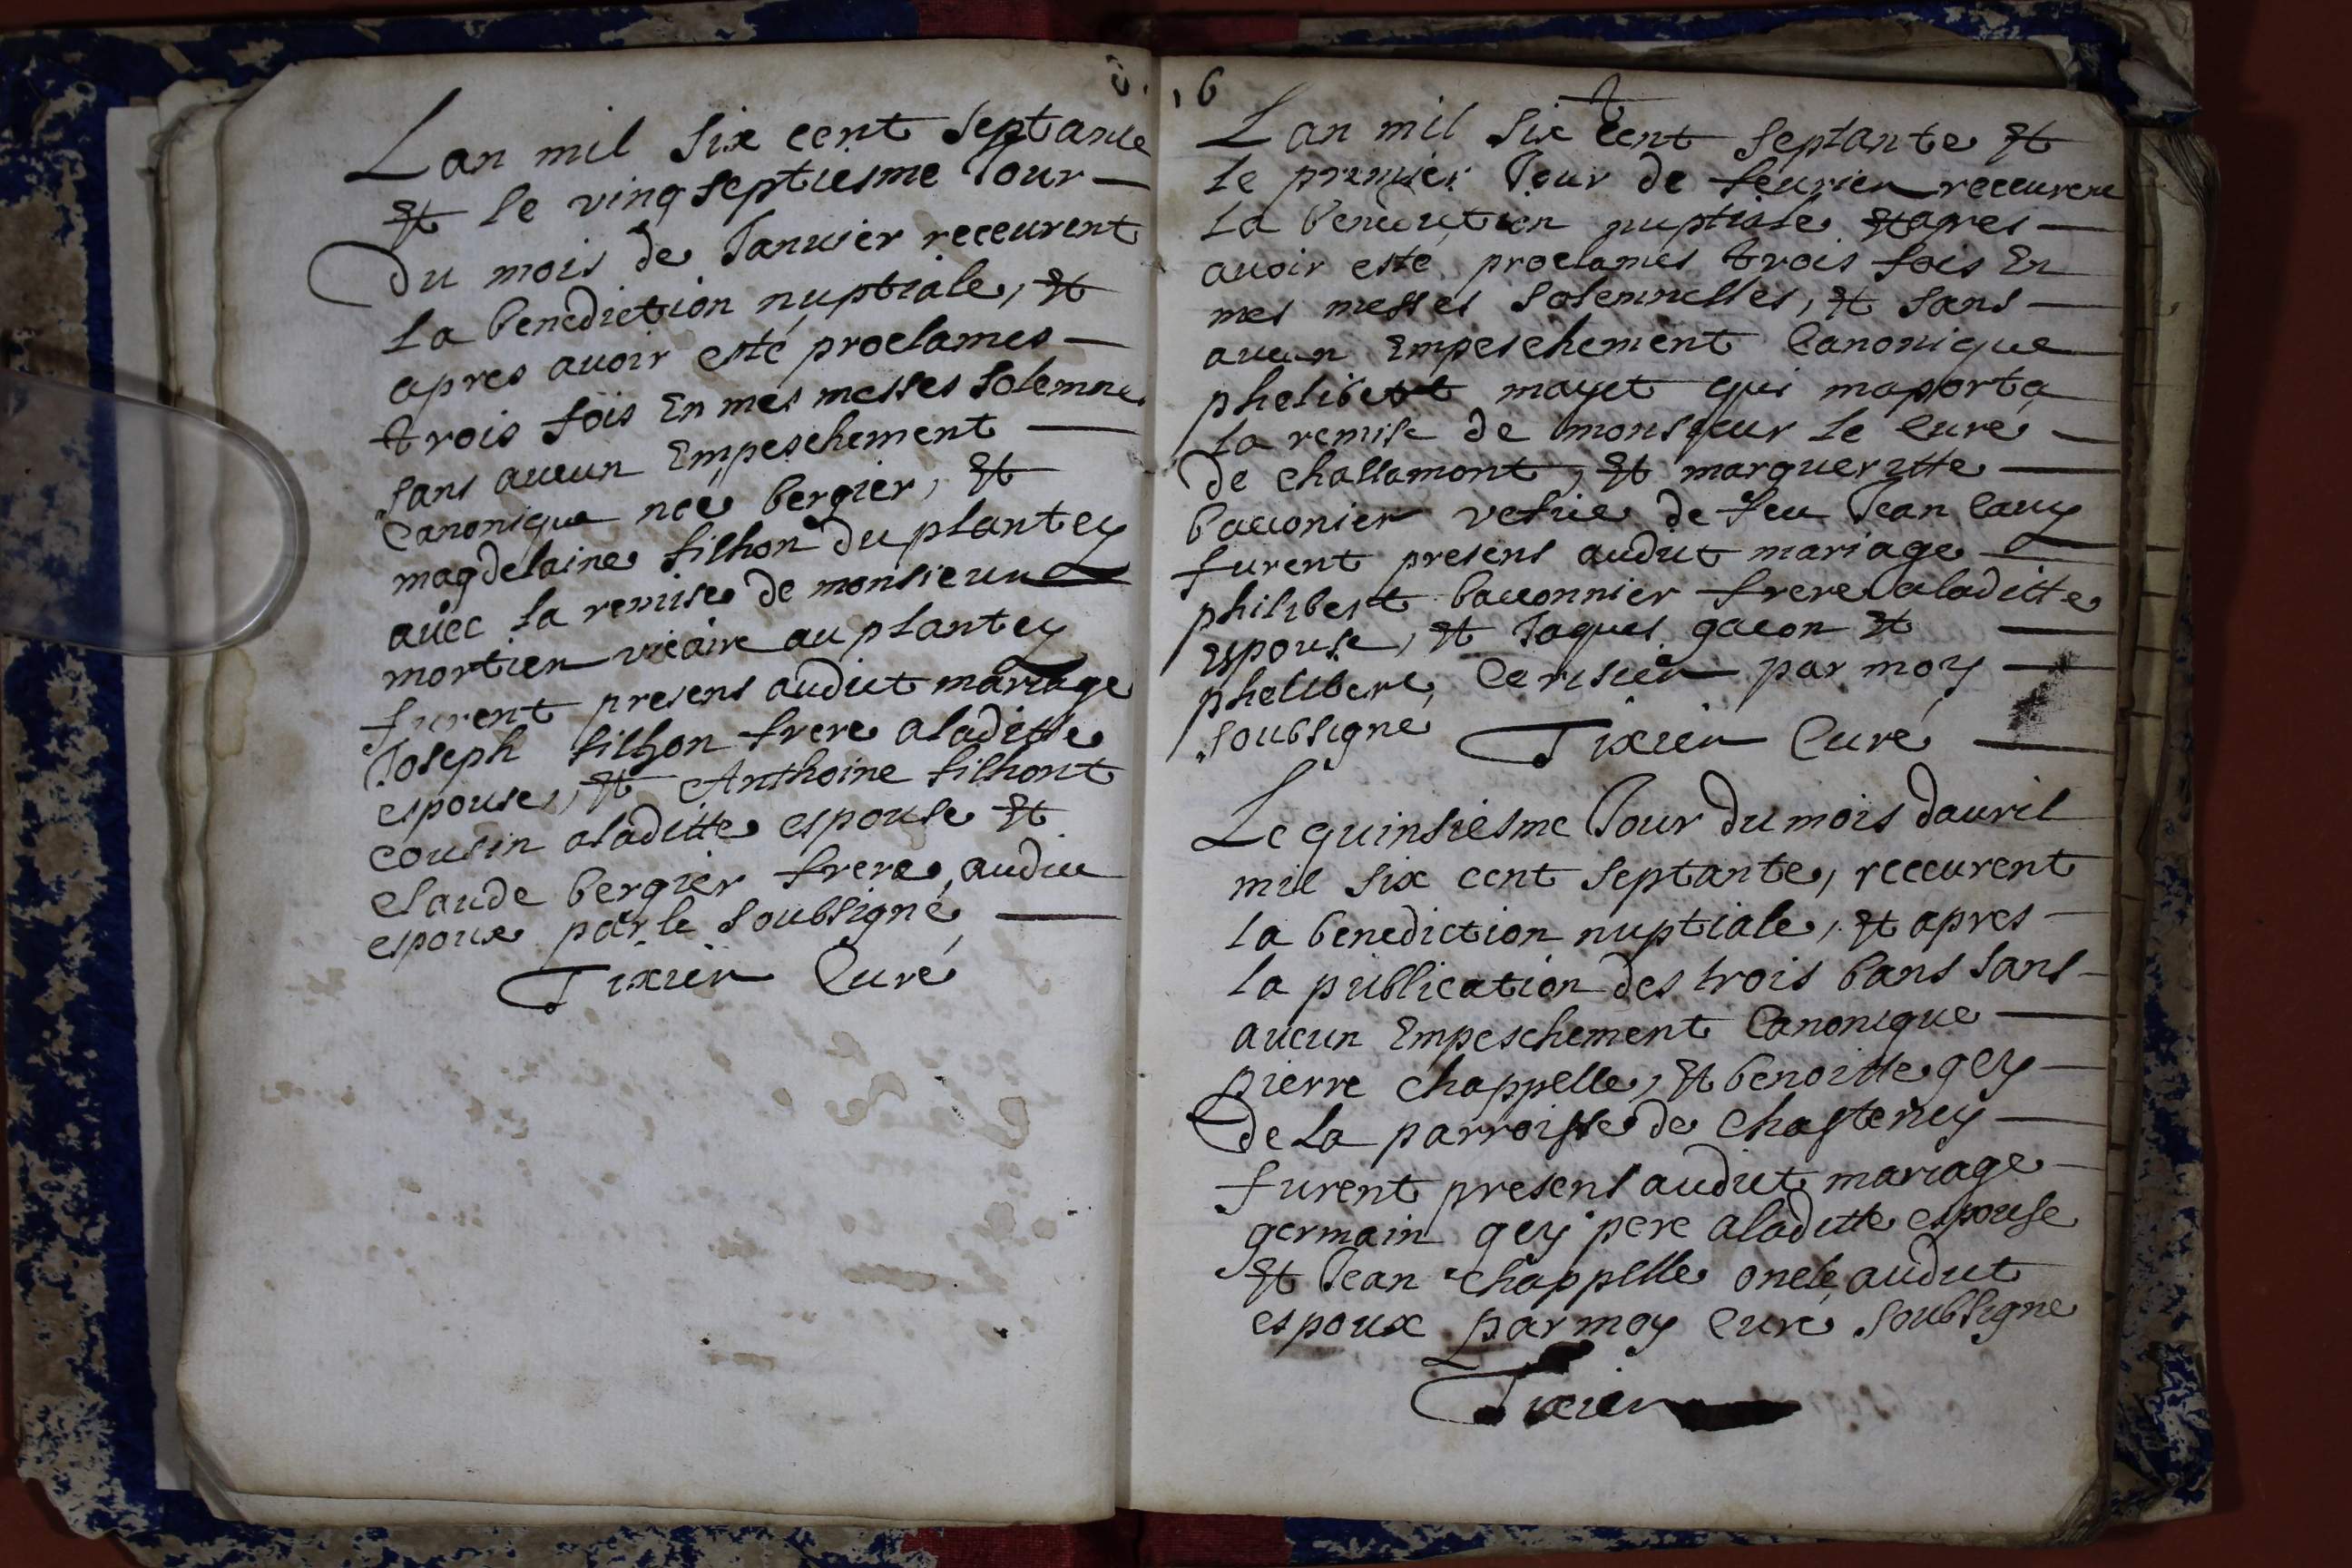 Lan mil six cent septante
et le vingseptiesme Jour
Du mois de Januier receurent
La benediction nuptiale, et
apres auoir esté proclames
trois fois En mes messes solemnes
sans aucun Empeschement
Canonique noe bergier, et
magdelaine filhon du plantey
auec la remise de monsieur
mortier vicaire au plantey
furent presens audict mariage
Joseph filhon frere aladitte
espouse, et Anthoine filhont
cousin aladitte espouse et
claude bergier frere audict
espoux par le soubsigné
Tixier Curé
6
Lan mil six cent septante et
le premier Jour de feurier receurent
La benediction nuptiale et apres
auoir esté proclames trois fois En
mes messes solemnelles, et sans
aucun Empeschement Canonique
phelibert mayet qui maporta
la remise de monsieur le Curé
de challamont, et margueritte
bacconier vefue de feu Jean
furent presens audict mariage
philibert bacconnier frere aladitte
espouse, et Jaques gacon et
phelibert Cerisier par moy
soubsigné
Tixier Curé
Le quinsiesme Jour du mois dauril
mil six cent septante, receurent
la benediction nuptiale, et apres
la publication des trois bans sans
aucun Empeschement Canonique
pierre chappelle, et benoitte gey
de La parroisse de chasteney
furent presens audict mariage
germain gey pere aladitte espouse
et Jean chappelle oncle audict
espoux par moy Curé soubsigné
Tixier